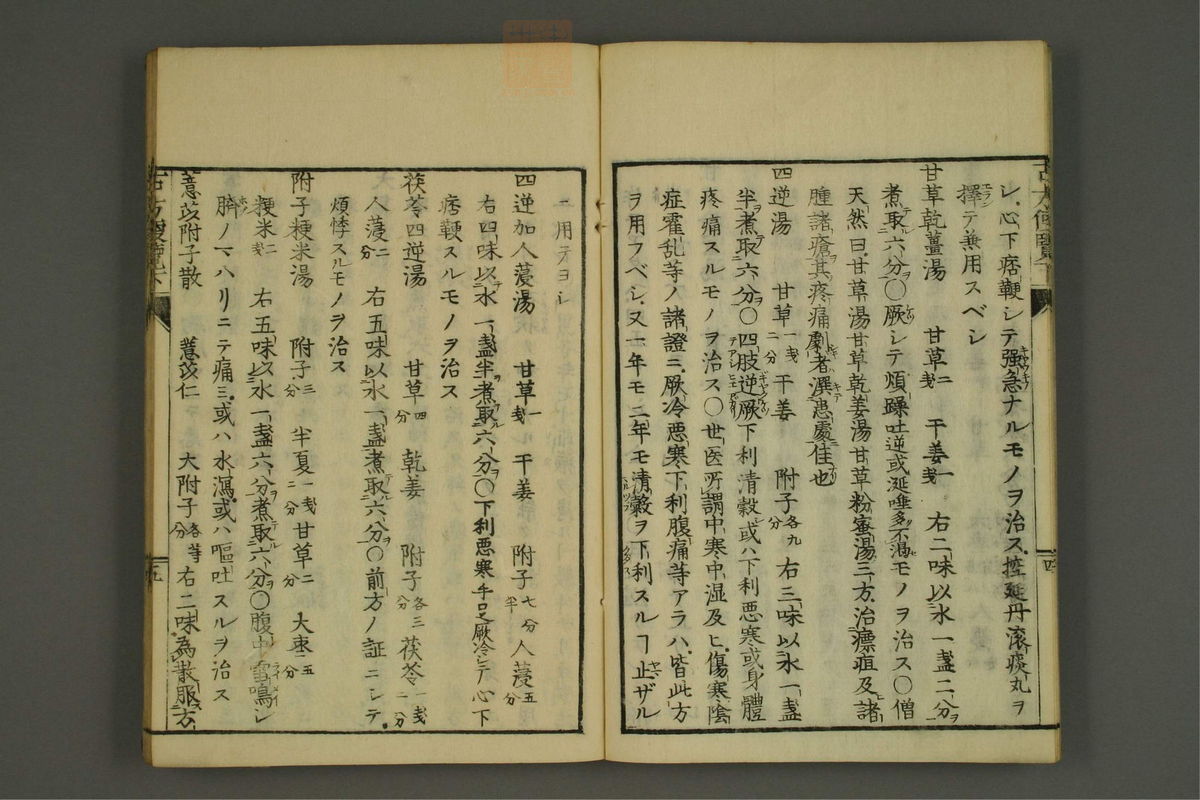 シ、心下痞鞕シテ强急ナルモノヲ治ス控延丹滚痰丸ヲ
擇テ兼用スベシ
甘草乾薑湯 甘草二戔 干姜一戔 右二味以水一盞二分
煮取六分〇厥シテ煩躁吐逆或涎唾多不渴モノヲ治ス〇僧
天然曰甘草湯甘草乾姜湯甘草粉蜜湯三方治瘭疽及諸
腫諸瘡其疼痛劇者潠患處佳也
四逆湯 甘草一戔二分 干姜 附子各九分 右三味以水一盞
半煮取六分〇四肢逆厥下利清穀或ハ下利悪寒或身體
疼痛スルモノヲ治ス〇世医所謂中寒中湿及ヒ傷寒陰
症霍乱等ノ諸證ニ厥冷悪寒下利腹痛等アラハ皆此方
ヲ用フベシ又一年モ二年モ清穀ヲ下利スルヿ止ザル
ニ用テヨシ
四逆加人薓湯 甘草一戔 干姜 附子七分半 人薓五分
右四味以水一盞半煮取六分〇下利悪寒手足厥冷シテ心下
痞鞕スルモノヲ治ス
茯苓四逆湯 甘草四分 乾姜 附子各三分 茯苓一戔二分
人薓二分 右五味以水一盞煮取六分〇前方ノ証ニシテ
煩悸スルモノヲ治ス
附子粳米湯 附子三分 半夏一戔二分 甘草二分 大枣五分
粳米二戔 右五味以水一盞六分煮取六分〇腹中雷鳴シ
臍ノマハリニテ痛ミ或ハ水瀉或ハ嘔吐スルヲ治ス
薏苡附子散 薏苡仁 大附子各等分 右二味為散服方